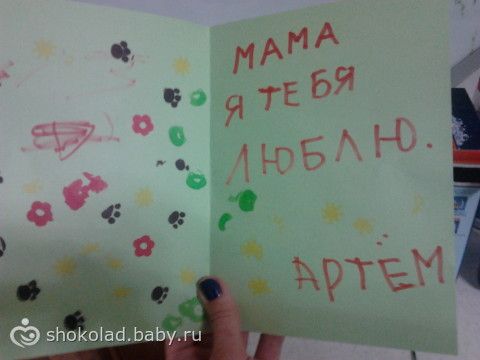 МАМА
Я ТЕБЯ
ЛЮБЛЮ.
АРТЁМ
shokolad.baby.ru